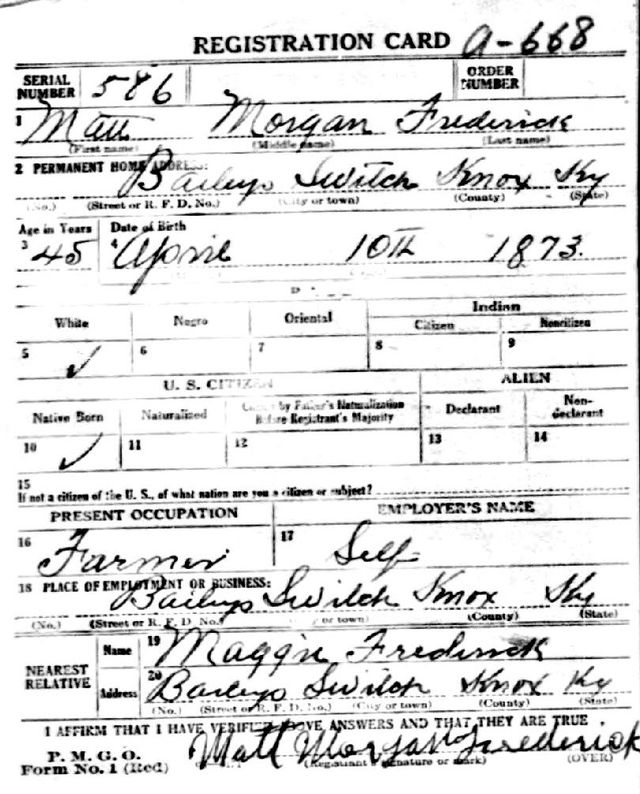 REGISTRATION CARD A-668
SERIAL NUMBER 586 ORDER NUMBER
1 Matt Morgan Frederick
(First name) (Middle name) (Last name)
2 PERMANENT HOME ADDRESS:
Baileys Switch Knox Ky
(No.) (Street or R. F. D. No.) (City or town) (County) (State)
Age in Years Date of Birth
3 45 4 April 10th 1873.
White Negro Oriental Indian
Citizen Noncitizen
5 ✓ 6 7 8 9
U. S. CITIZEN ALIEN
Native Born Naturalized Citizen by Father's Naturalization Before Registrant's Majority Declarant Non-declarant
10 ✓ 11 12 13 14
15
If not a citizen of the U. S., of what nation are you a citizen or subject?
PRESENT OCCUPATION EMPLOYER'S NAME
16 Farmer 17 Self
18 PLACE OF EMPLOYMENT OR BUSINESS:
Baileys Switch Knox Ky
(No.) (Street or R. F. D. No.) (City or town) (County) (State)
NEAREST RELATIVE Name 19 Maggie Frederick
Address 20 Baileys Switch Knox Ky
(No.) (Street or R. F. D. No.) (City or town) (County) (State)
I AFFIRM THAT I HAVE VERIFIED ABOVE ANSWERS AND THAT THEY ARE TRUE
P. M. G. O.
Form No. 1 (Red) Matt Morgan Frederick
(Registrant's signature or mark) (OVER)